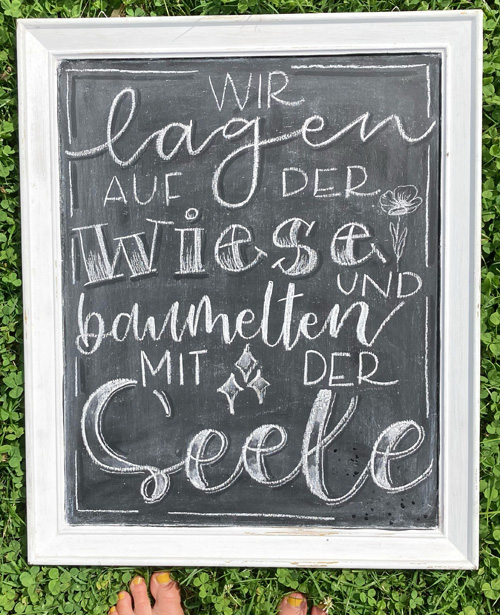 WIR
lagen
AUF DER
Wiese
UND
baumelten
MIT DER
Seele